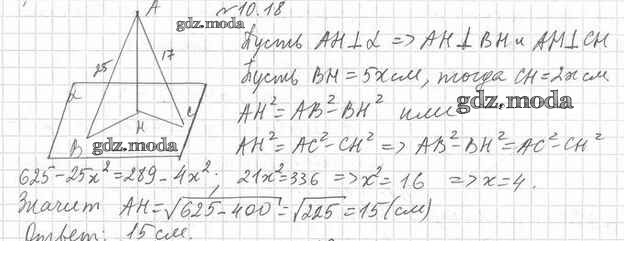 №10.18
A
gdz.moda
Пусть AH⊥α => AH⊥BH и AH⊥CH
25
17
Пусть BH=5x см, тогда CH=2x см
α
AH²=AB²-BH² или
gdz.moda
C
H
B
gdz.moda
AH²=AC²-CH² => AB²-BH²=AC²-CH²
625-25x²=289-4x²; 21x²=336 => x²=16 => x=4.
Значит AH=√625-400=√225=15(см)
Ответ: 15см.